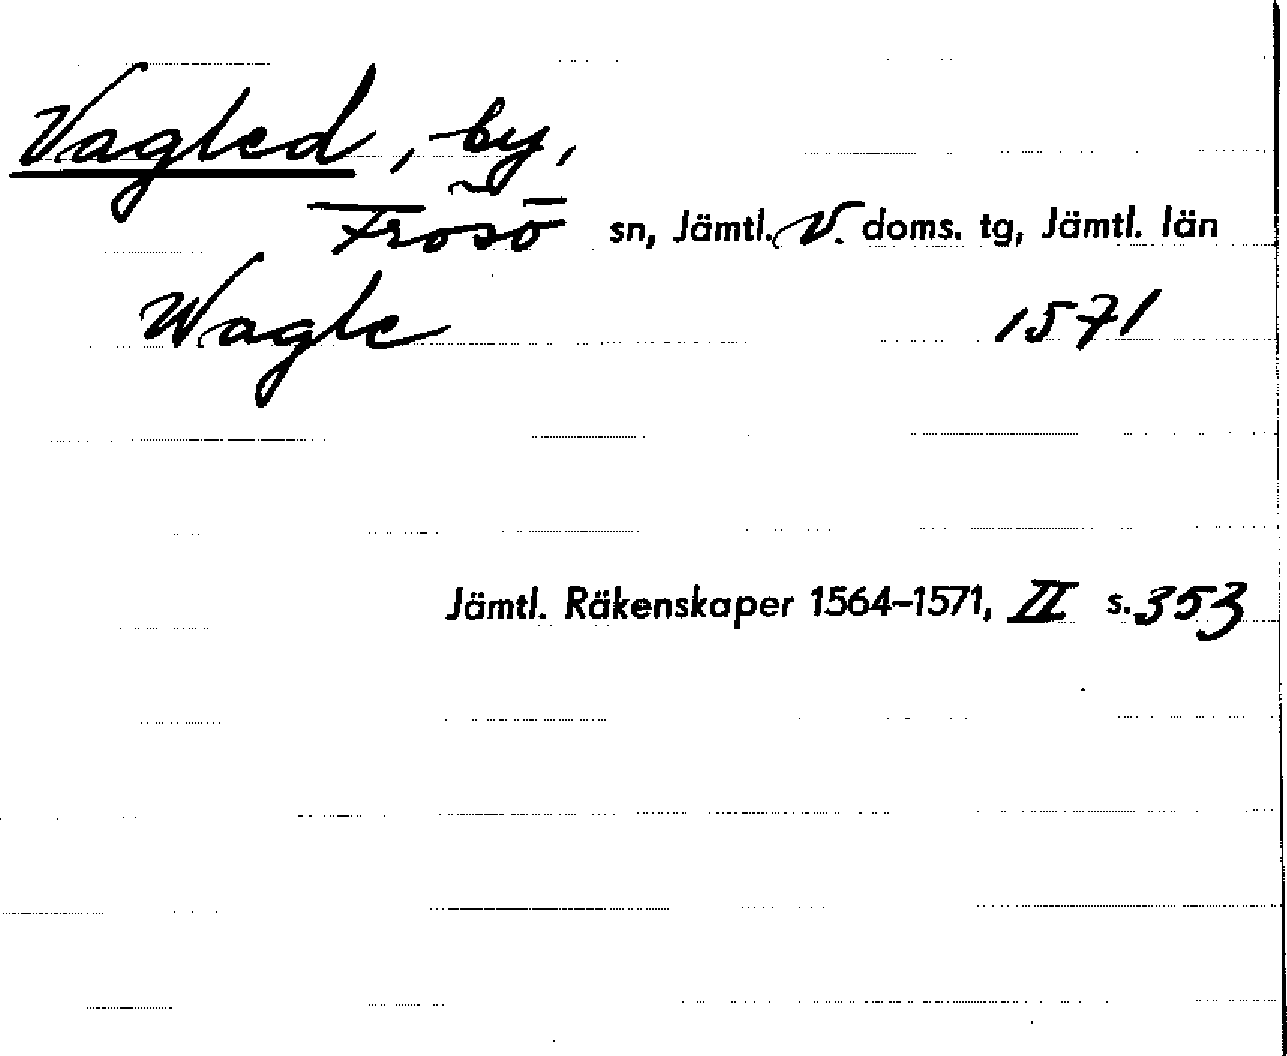 Vagled, by,
Frösö sn, Jämtl. V. doms. tg, Jämtl. län
Wagle 1571
Jämtl. Räkenskaper 1564–1571, II s. 353